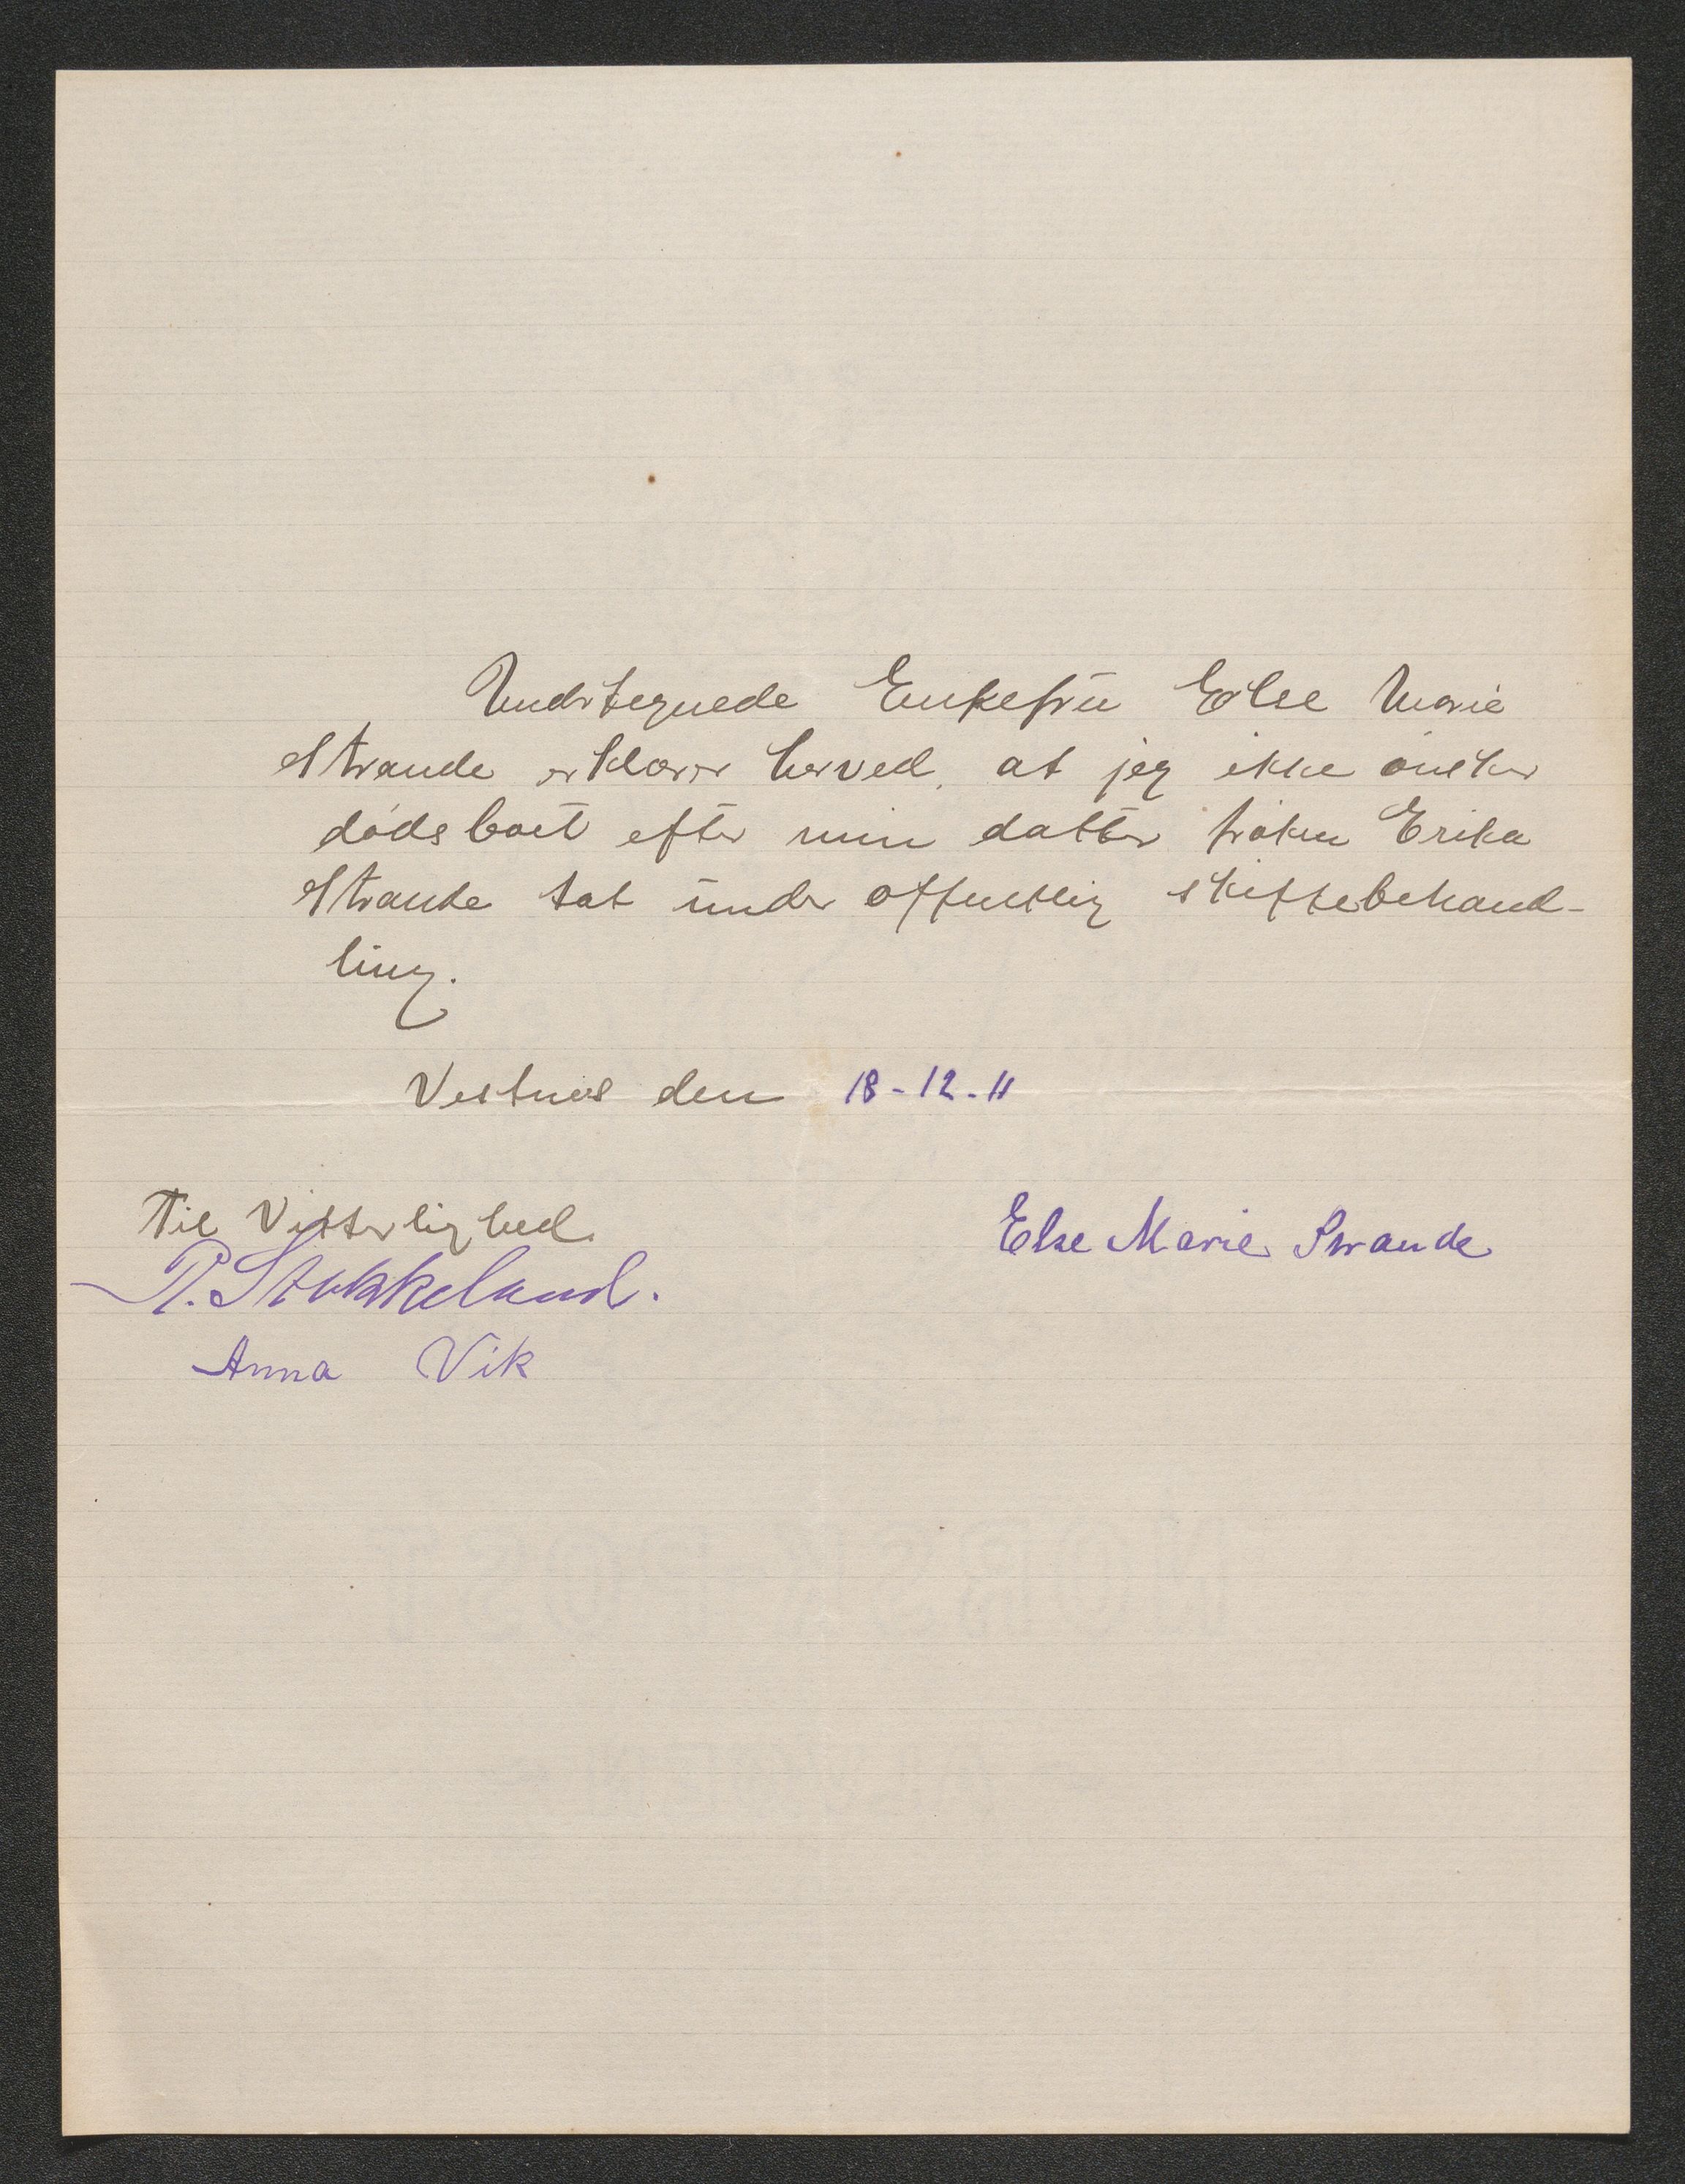 Undertegnede Enkefrü Else Marie
Strande erklærer herved, at jeg ikke önsker
dödsboet efter min datter fröken Erika
Strande tat ünder offentlig skiftebehand-
ling.
Vestnes den 18-12-11
Til Vitterlighed.
Else Marie Strande
P. Stokkeland.
Anna Vik
NORSK POST